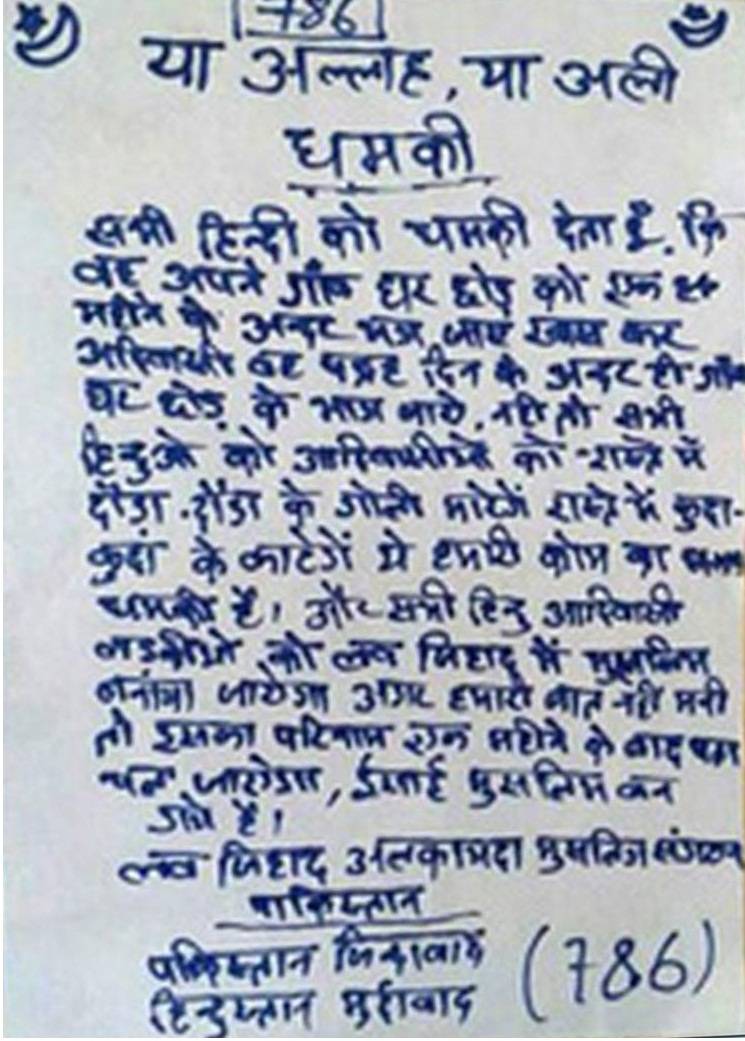 786
या अल्लाह, या अली
धमकी
सभी हिन्दी को धमकी देता हूँ. कि
वह अपने गाँव घर छोड़ को एक
महीने के अन्दर भाग जाए खास कर
आदिवासी वह पन्द्रह दिन के अन्दर ही गाँव
घर छोड़ के भाग जाये, नही तो सभी
हिन्दुओ को आदिवासीओ को रास्ते में
दौड़ा-दौड़ा के गोली मारेगें रास्ते में कुदा-
कुदा के काटेगें ये हमारी कोम का
धमकी है। और सभी हिन्दु आदिवासी
लडकीओ को लव जिहाद में मुसलिम
बनाया जायेगा अगर हमारी बात नही मनी
तो इसका परिणाम एक महीने के बाद पता
चल जायेगा, ईसाई मुसलिम बन
गये है।
लव जिहाद अलकायदा मुसलिम संगठन
पाकिस्तान
पकिस्तान जिन्दावाद
हिन्दुस्तान मुर्दावाद
(786)